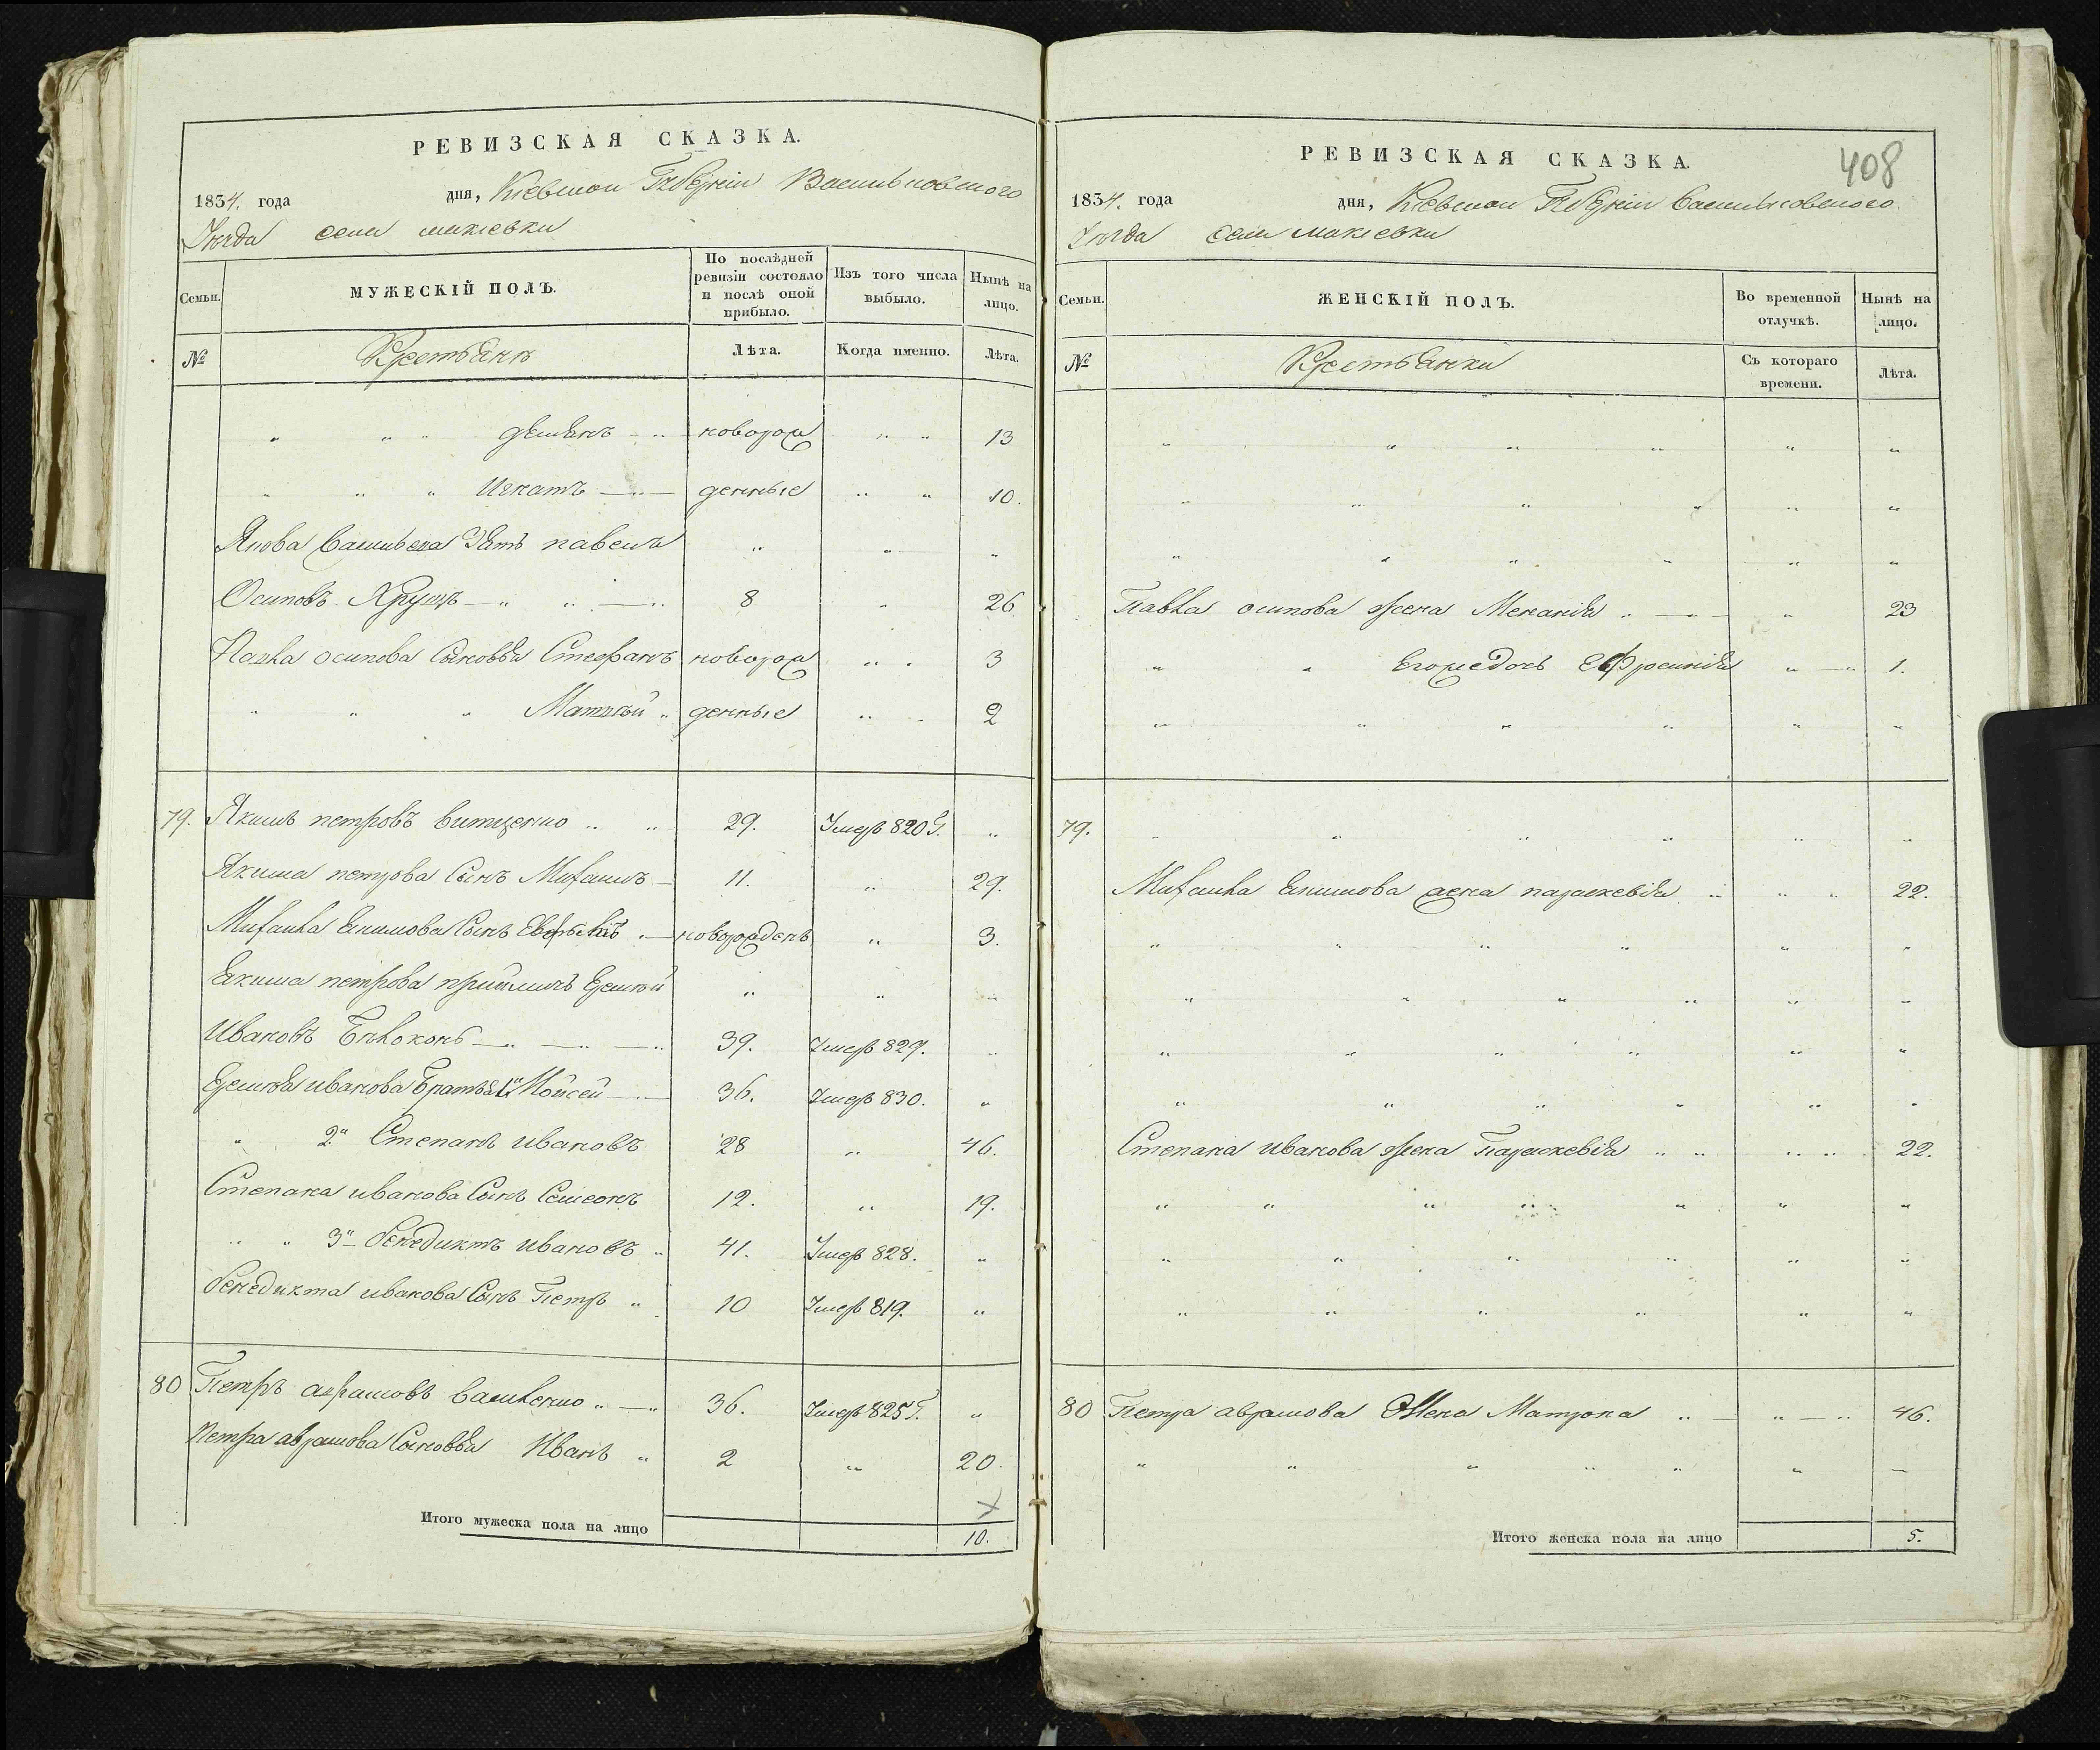 РЕВИЗСКАЯ СКАЗКА.
1834. года дня, Кіевской Губерніи Васильковского
Уѣзда села макіевки
Семьи. МУЖЕСКІЙ ПОЛЪ. По послѣдней ревизіи состояло и послѣ оной прибыло. Изъ того числа выбыло. Нынѣ на лицо.
№ Крестьянѣ Лѣта. Когда именно. Лѣта.
" " " новорож " " 13
" " " Игнатъ — " — денные " " 10.
Якова Васильева Зять павелъ " " "
Осиповъ — " " — " 8 " 26
Павла осипова Сыновья Стефанъ новорож " " 3
" " " Матвѣй " денные " " 2
79. Якимъ петровъ витценко " " 29. Умеръ 820 Г. "
Якима петрова Сынъ Михаилъ — 11. " 29.
Михаила Екимова Сынъ — новорожденъ " 3.
Екима петрова приймичъ Еремѣй " " "
Ивановъ Бѣлоконь — " — " — " 39. Умеръ 829. "
Еремѣя иванова Братья 1й Мойсей — " — 36. Умеръ 830. "
" 2й Степанъ ивановъ 28 " 46.
Степана иванова Сынъ Семеонъ 12. " 19.
" " 3й Бенедиктъ ивановъ " 41. Умеръ 828. "
Бенедикта иванова Сынъ Петръ " 10 Умеръ 819. "
80 Петръ аврамовъ Василенко " — " 36. Умеръ 825 Г. "
Петра аврамова Сыновья Иванъ " 2 " 20.
Итого мужеска пола на лицо 10.
408
РЕВИЗСКАЯ СКАЗКА.
1834. года дня, Кіевской Губерніи Васильковского
Уѣзда села макіевки
Семьи. ЖЕНСКІЙ ПОЛЪ. Во временной отлучкѣ. Нынѣ на лицо.
№ Крестьянки Съ котораго времени. Лѣта.
" " " " " "
" " " " " "
" " " " " "
Павла осипова жена Меланія " — " — " 23
" " Егожедочь Ефросинія " — " 1.
" " " " " "
79. " " " " " "
Михаила Екимова жена параскевія " " " 22.
" " " " " "
" " " " " —
" " " " " "
" " " " " "
Степана иванова жена Параскевія " " " " 22.
" " " " " " "
" " " " " "
" " " " " "
80 Петра аврамова Жена Матрона " — " — " 46.
" " " " " " —
Итого женска пола на лицо 5.